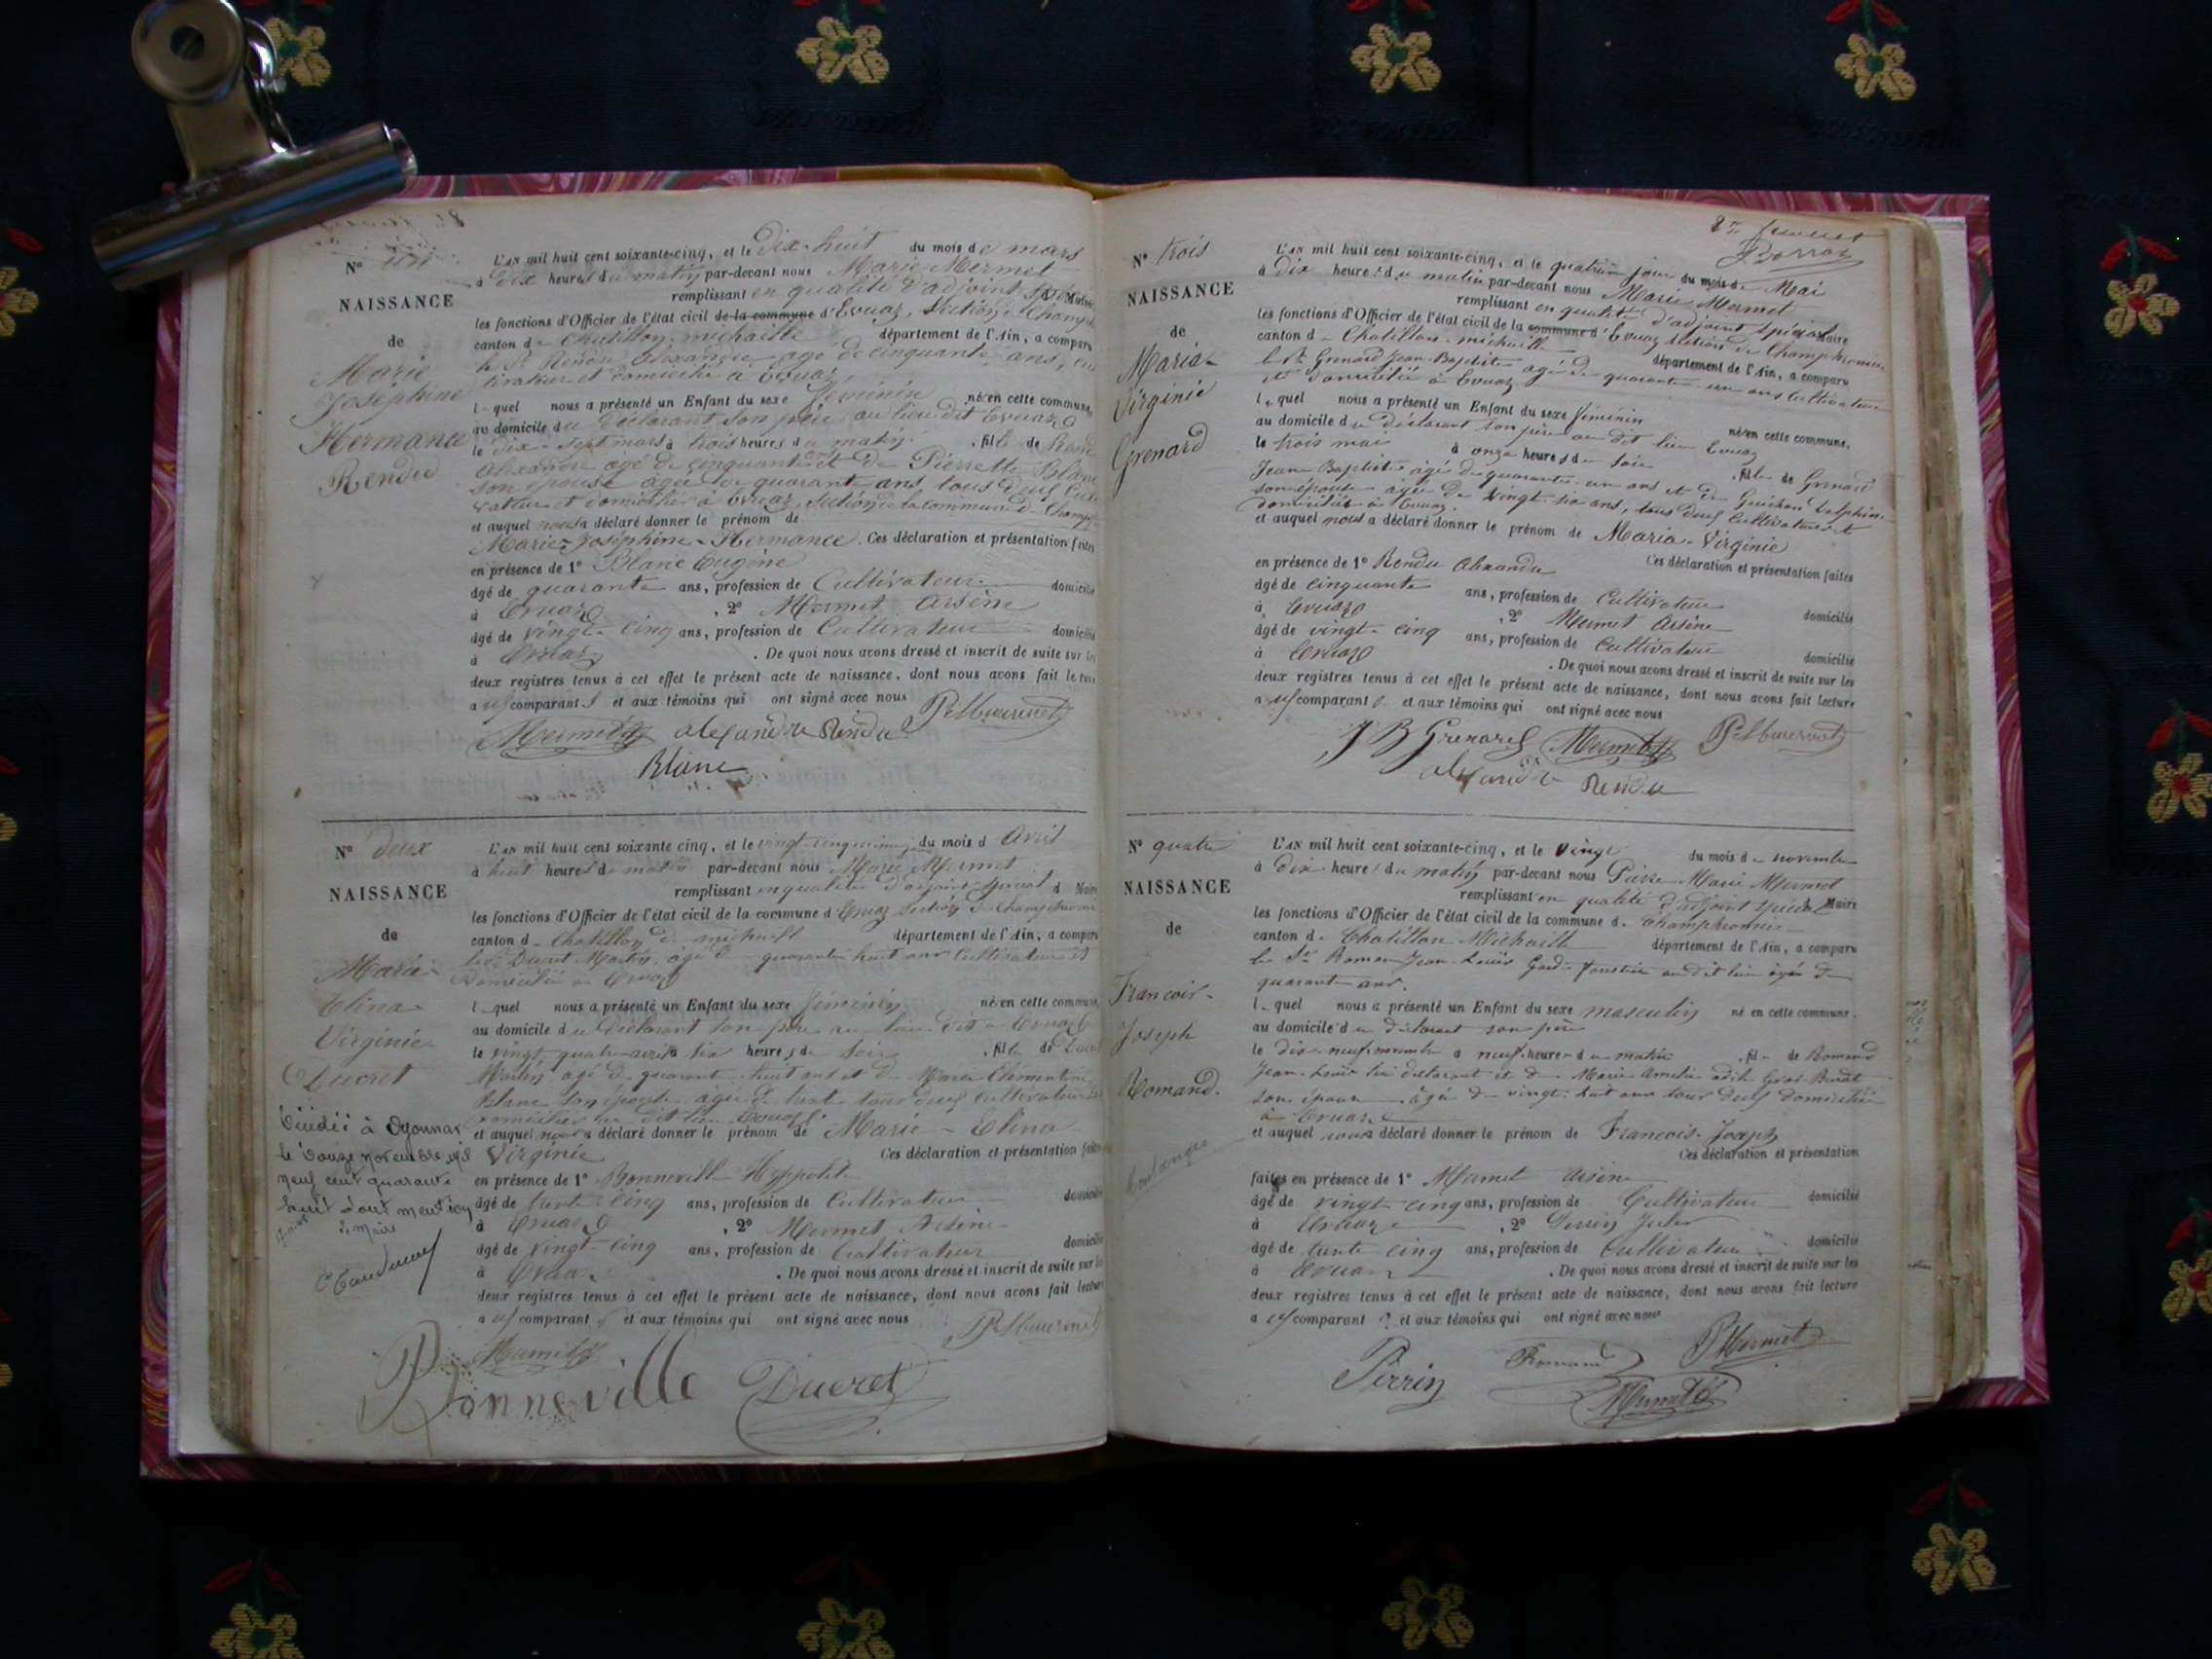 N° un
NAISSANCE
de
Marie
Joséphine
Hermance
Rendu
L'AN mil huit cent soixante-cinq, et le Dix-huit du mois de mars
à dix heures du matin par-devant nous Marie Mermet
remplissant en qualité d'adjoint spécial Maire
les fonctions d'Officier de l'état civil de la commune d'Evuaz, Section de Champf
canton de Chatillon michaille département de l'Ain, a comparu
le Sr Rendu Alexandre agé de cinquante ans, cul
tivateur et domicilié à Evuaz
lequel nous a présenté un Enfant du sexe féminin né en cette commune,
au domicile du déclarant son père au lieu dit Evuaz
le dix-sept mars à trois heures du matin. , fille de Rendu
Alexandre âgé de cinquante ans et de Pierrette Blanc
son épouse agée de quarante ans tous deux culti
vateurs et domiciliés à Evuaz, Section de la commune de Champf
et auquel nous a déclaré donner le prénom de
Marie-Joséphine-Hermance. Ces déclaration et présentation faites
en présence de 1° Blanc Eugène
âgé de quarante ans, profession de Cultivateur domicilié
à Evuaz , 2° Mermet Arsène
âgé de vingt-cinq ans, profession de Cultivateur domicilié
à Evuaz . De quoi nous avons dressé et inscrit de suite sur les
deux registres tenus à cet effet le présent acte de naissance, dont nous avons fait lecture
aux comparants et aux témoins qui ont signé avec nous
Mermet alexandre Rendu PMMermet
Blanc
N° deux
NAISSANCE
de
Marie
Elina
Virginie
Ducret
Décédée à Oyonnax
le douze novembre mil
neuf cent quarante
huit dont mention
le Maire
L'AN mil huit cent soixante cinq, et le vingt-cinquième jour du mois d Avril
à huit heures du matin par-devant nous Marie Mermet
remplissant en qualité d'adjoint spécial d Maire
les fonctions d'Officier de l'état civil de la commune d'Evuaz Section de Champfromier
canton de Chatillon de michaille département de l'Ain, a comparu
le Sr Ducret Martin, agé de quarante huit ans cultivateur et
domicilié à Evuaz
lequel nous a présenté un Enfant du sexe féminin né en cette commune,
au domicile du déclarant son père au lieu dit Evuaz
le vingt quatre avril à six heures du soir , fille de Ducret
Martin agé de quarante huit ans et de Marie Clémentine
Blanc son épouse agée de trente tous deux cultivateurs et
domiciliés au dit lieu Evuaz
et auquel nous a déclaré donner le prénom de Marie-Elina
Virginie Ces déclaration et présentation faites
en présence de 1° Bonneville Hyppolite
âgé de trente cinq ans, profession de Cultivateur domicilié
à Evuaz , 2° Mermet Arsène
âgé de vingt-cinq ans, profession de Cultivateur domicilié
à Evuaz . De quoi nous avons dressé et inscrit de suite sur les
deux registres tenus à cet effet le présent acte de naissance, dont nous avons fait lecture
aux comparants et aux témoins qui ont signé avec nous
Mermet PMMermet
Bonneville Ducret
N° trois
NAISSANCE
de
Maria-
Virginie
Grenard
L'AN mil huit cent soixante-cinq, et le quatrième jour du mois de Mai
à dix heures du matin par-devant nous Marie Mermet
remplissant en qualité d'adjoint spécial Maire
les fonctions d'Officier de l'état civil de la commune d'Evuaz Section de Champfromier
canton de Chatillon-michaille département de l'Ain, a comparu
le Sr Grenard Jean-Baptiste agé de quarante-un ans cultivateur
et domicilié à Evuaz
lequel nous a présenté un Enfant du sexe féminin né en cette commune,
au domicile du déclarant son père au dit lieu Evuaz
le trois mai à onze heures du soir , fille de Grenard
Jean-Baptiste agé de quarante un ans et de Guichon Delphine
son épouse âgée de vingt-six ans, tous deux cultivateurs et
domiciliés à Evuaz.
et auquel nous a déclaré donner le prénom de Maria-Virginie
Ces déclaration et présentation faites
en présence de 1° Rendu Alexandre
âgé de cinquante ans, profession de Cultivateur domicilié
à Evuaz , 2° Mermet Arsène
âgé de vingt-cinq ans, profession de Cultivateur domicilié
à Evuaz . De quoi nous avons dressé et inscrit de suite sur les
deux registres tenus à cet effet le présent acte de naissance, dont nous avons fait lecture
aux comparants et aux témoins qui ont signé avec nous
J B Grenard Mermet PMMermet
alexandre Rendu
N° quatre
NAISSANCE
de
Francois-
Joseph
Romand.
L'AN mil huit cent soixante-cinq, et le vingt du mois de novembre
à dix heures du matin par-devant nous Pierre Marie Mermet
remplissant en qualité d'adjoint spécial Maire
les fonctions d'Officier de l'état civil de la commune de Champfromier
canton de Chatillon Michaille département de l'Ain, a comparu
le Sr Romand Jean-Louis Garde forestier au dit lieu agé de
quarante ans.
lequel nous a présenté un Enfant du sexe masculin né en cette commune,
au domicile du déclarant son père
le dix-neuf novembre à neuf heures du matin , fils de Romand
Jean-Louis le déclarant et de Marie Amélie Gros-Burdet
son épouse agée de vingt-huit ans tous deux domiciliés
à Evuaz
et auquel nous a déclaré donner le prénom de Francois-Joseph
Ces déclaration et présentation
faites en présence de 1° Mermet Arsène
âgé de vingt cinq ans, profession de Cultivateur domicilié
à Evuaz , 2° Perrin Jules
âgé de trente cinq ans, profession de Cultivateur domicilié
à Evuaz . De quoi nous avons dressé et inscrit de suite sur les
deux registres tenus à cet effet le présent acte de naissance, dont nous avons fait lecture
aux comparants et aux témoins qui ont signé avec nous
Perrin Romand PMermet
Mermet